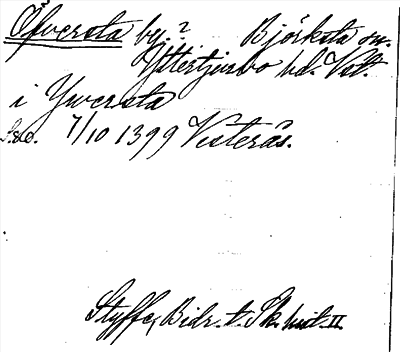 Öfversta by.? Björksta sn.
Yttertjurbo hd. Vstl.
i Ywersta
S. d. 7/10 1399 Vesterås.
Styffe, Bidr. t. Sk. hist. II